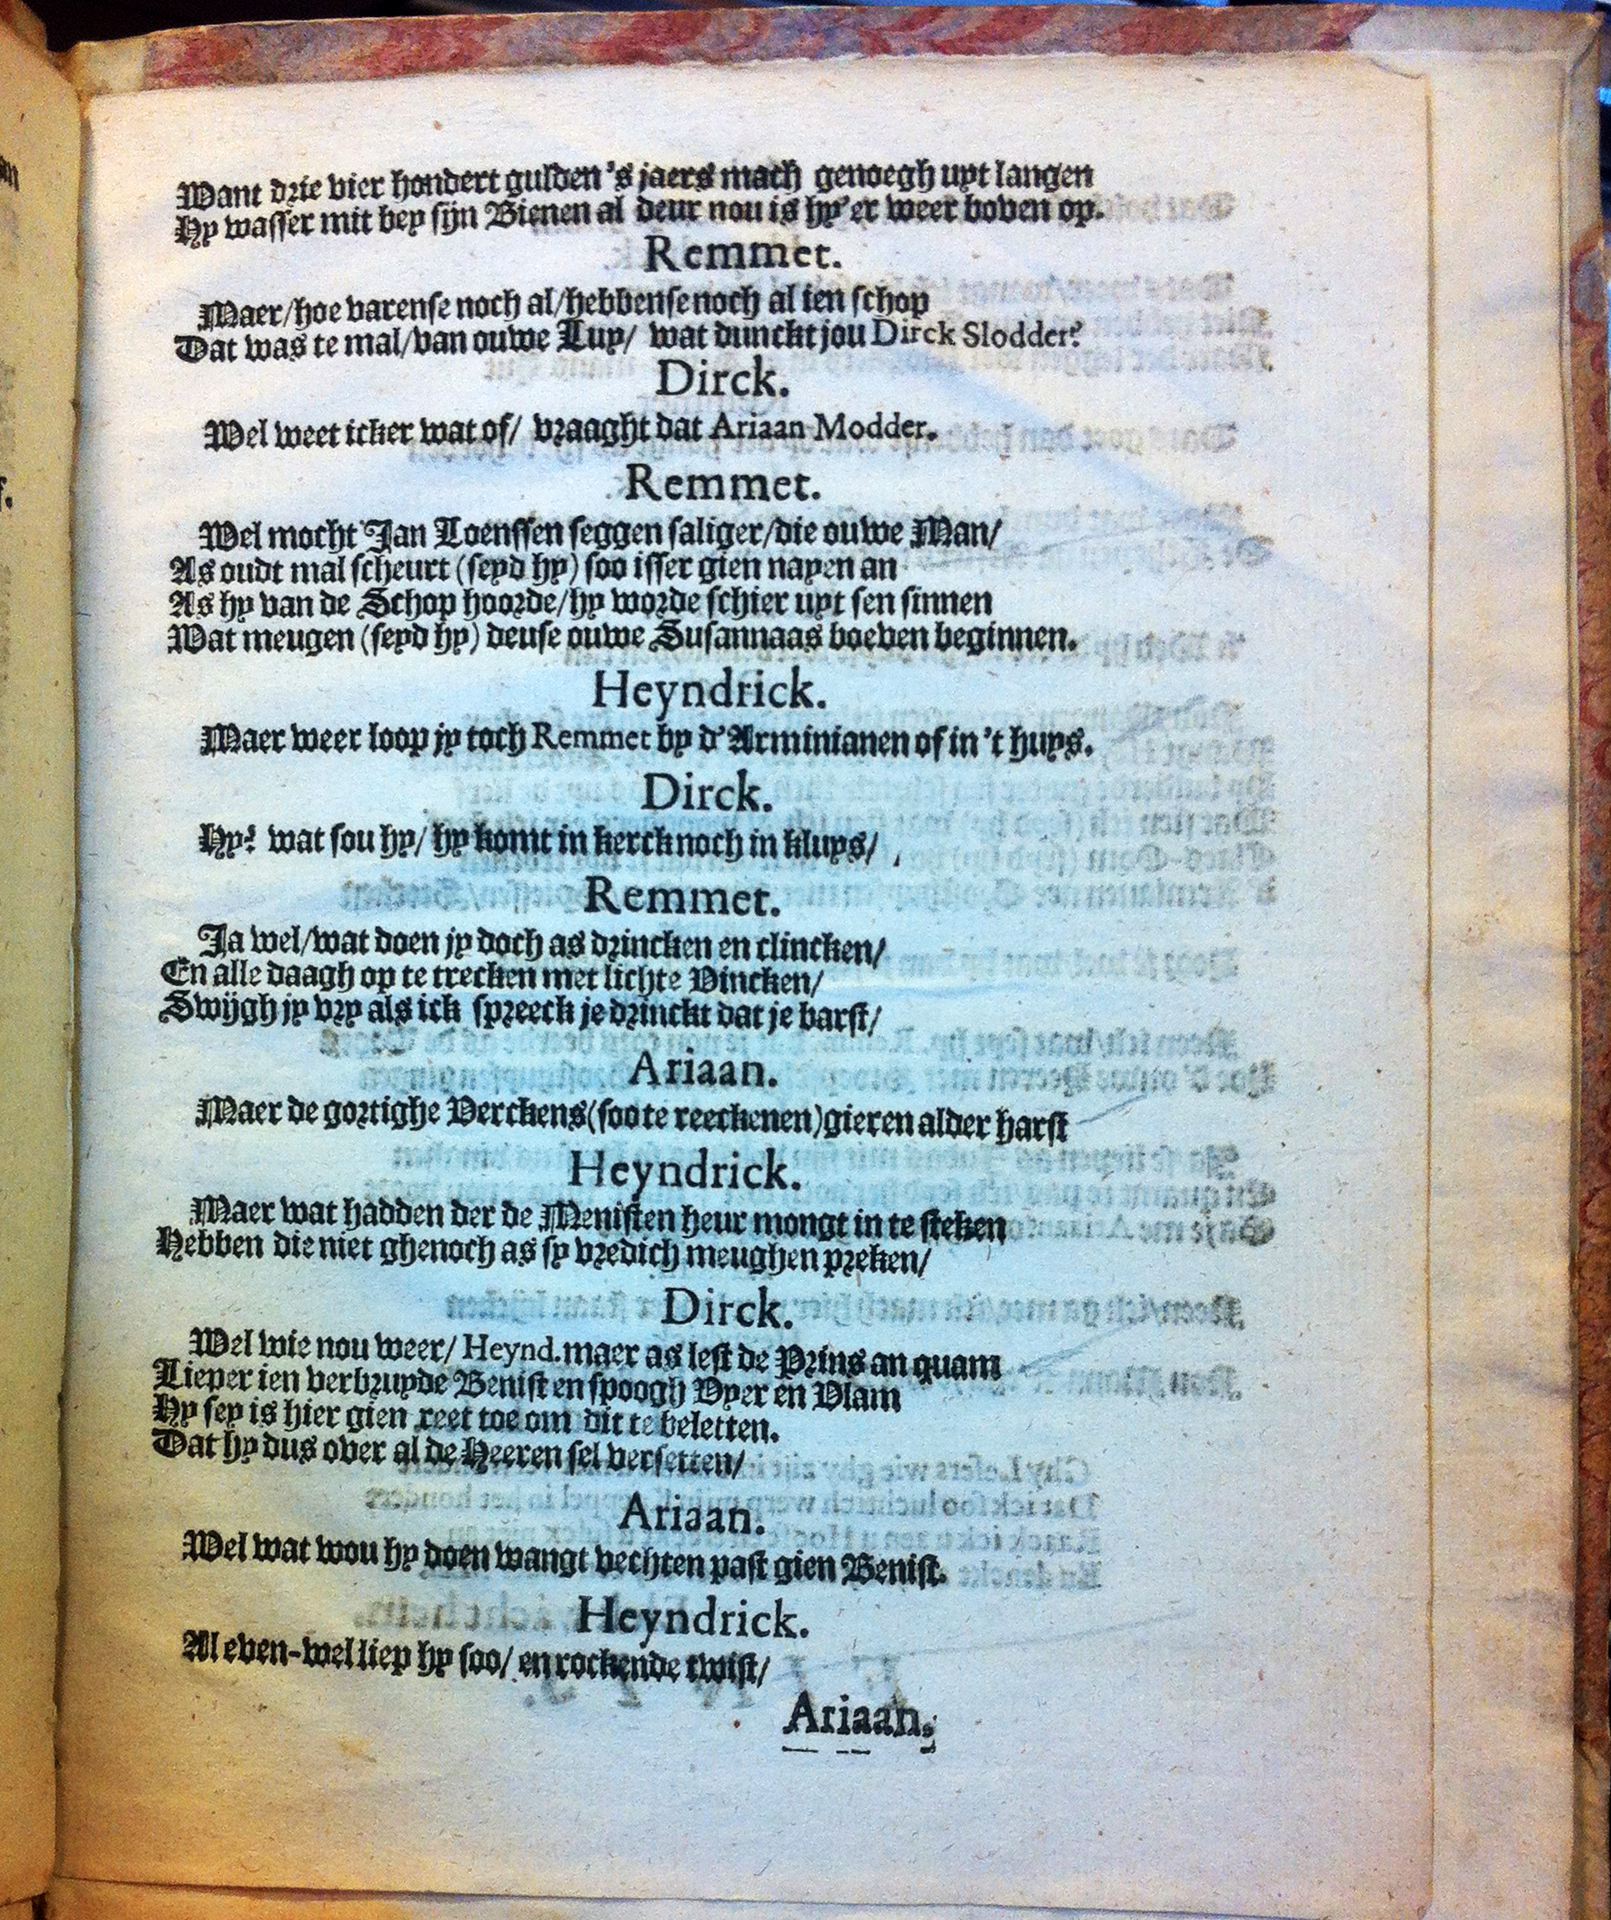 Want drie vier hondert gulden 's jaers mach genoegh uyt langen
Hy wasser mit bey sijn Bienen al deur nou is hy'er weer boven op.
Remmet.
Maer/hoe varense noch al/hebbense noch al ien schop
Dat was te mal/van ouwe Luy/ wat dunckt jou Dirck Slodder?
Dirck.
Wel weet icker wat of/ vraaght dat Ariaan Modder.
Remmet.
Wel mocht Jan Loenssen seggen saliger/die ouwe Man/
As oudt mal scheurt (seyd hy) soo isser gien nayen an
As hy van de Schop hoorde/hy worde schier uyt sen sinnen
Wat meugen (seyd hy) deuse ouwe Susannaas boeven beginnen.
Heyndrick.
Maer weer loop jy toch Remmet by d'Arminianen of in 't huys.
Dirck.
Hy? wat sou hy/ hy komt in kerck noch in kluys/
Remmet.
Ja wel/wat doen jy doch as drincken en clincken/
En alle daagh op te trecken met lichte Vincken/
Swijgh jy vry als ick spreeck je drinckt dat je barst/
Ariaan.
Maer de gortighe Verckens(soo te reeckenen)gieren alder harst
Heyndrick.
Maer wat hadden der de Menisten heur mongt in te steken
Hebben die niet ghenoch as sy vredich meughen preken/
Dirck.
Wel wie nou weer/ Heynd. maer as lest de Prins an quam
Lieper ien verbruyde Benist en spoogh Vyer en Vlam
Hy sey is hier gien reet toe om dit te beletten.
Dat hy dus over al de Heeren sel versetten/
Ariaan.
Wel wat wou hy doen wangt vechten past gien Benist.
Heyndrick.
Al even-wel liep hy soo/ en rockende twist/
Ariaan.